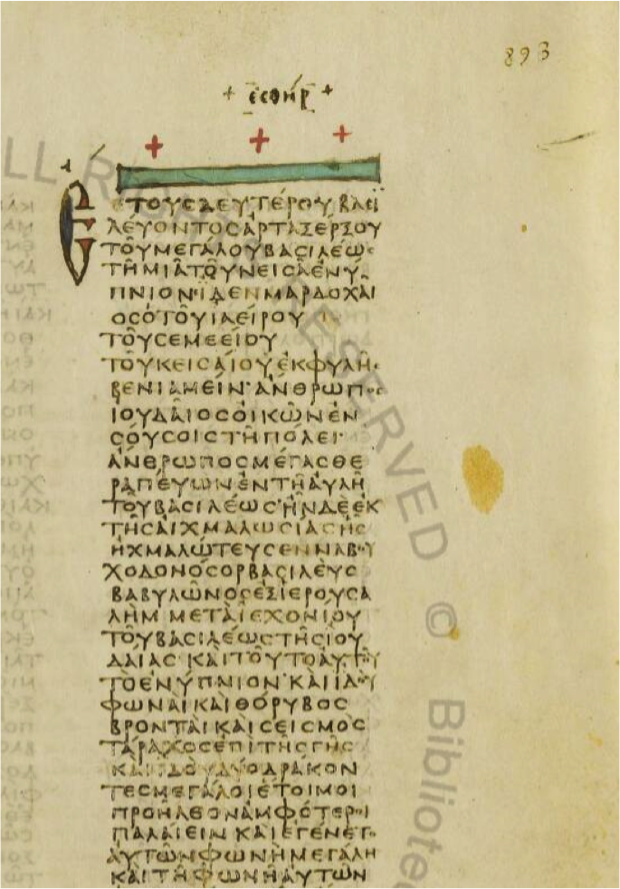 893
+ ἐσθήρ +
+ + +
ΕΤΟΥΣ ΔΕΥΤΕΡΟΥ ΒΑΣΙ
ΛΕΥΟΝΤΟΣ ΑΡΤΑΞΕΡΞΟΥ
ΤΟΥ ΜΕΓΑΛΟΥ ΒΑΣΙΛΕΩΣ
ΤΗ ΜΙΑ ΤΟΥ ΝΕΙΣΑ ΕΝΥ
ΠΝΙΟΝ ΙΔΕΝ ΜΑΡΔΟΧΑΙ
ΟΣ Ο ΤΟΥ ΙΑΕΙΡΟΥ
ΤΟΥ ΣΕΜΕΕΙΟΥ
ΤΟΥ ΚΕΙΣΑΙΟΥ ΕΚ ΦΥΛΗΣ
ΒΕΝΙΑΜΕΙΝ ΑΝΘΡΩΠΟΣ
ΙΟΥΔΑΙΟΣ ΟΙΚΩΝ ΕΝ
ΣΟΥΣΟΙΣ ΤΗ ΠΟΛΕΙ
ΑΝΘΡΩΠΟΣ ΜΕΓΑΣ ΘΕ
ΡΑΠΕΥΩΝ ΕΝ ΤΗ ΑΥΛΗ
ΤΟΥ ΒΑΣΙΛΕΩΣ ΗΝ ΔΕ ΕΚ
ΤΗΣ ΑΙΧΜΑΛΩΣΙΑΣ ΗΣ
ΗΧΜΑΛΩΤΕΥΣΕΝ ΝΑΒΟΥ
ΧΟΔΟΝΟΣΟΡ ΒΑΣΙΛΕΥΣ
ΒΑΒΥΛΩΝΟΣ ΕΞ ΙΕΡΟΥΣΑ
ΛΗΜ ΜΕΤΑ ΙΕΧΟΝΙΟΥ
ΤΟΥ ΒΑΣΙΛΕΩΣ ΤΗΣ ΙΟΥ
ΔΑΙΑΣ ΚΑΙ ΤΟΥΤΟ ΑΥΤΟΥ
ΤΟ ΕΝΥΠΝΙΟΝ ΚΑΙ ΙΔΟΥ
ΦΩΝΑΙ ΚΑΙ ΘΟΡΥΒΟΣ
ΒΡΟΝΤΑΙ ΚΑΙ ΣΕΙΣΜΟΣ
ΤΑΡΑΧΟΣ ΕΠΙ ΤΗΣ ΓΗΣ
ΚΑΙ ΙΔΟΥ ΔΥΟ ΔΡΑΚΟΝ
ΤΕΣ ΜΕΓΑΛΟΙ ΕΤΟΙΜΟΙ
ΠΡΟΗΛΘΟΝ ΑΜΦΟΤΕΡΟΙ
ΠΑΛΑΙΕΙΝ ΚΑΙ ΕΓΕΝΕΤΟ
ΑΥΤΩΝ ΦΩΝΗ ΜΕΓΑΛΗ
ΚΑΙ ΤΗ ΦΩΝΗ ΑΥΤΩΝ